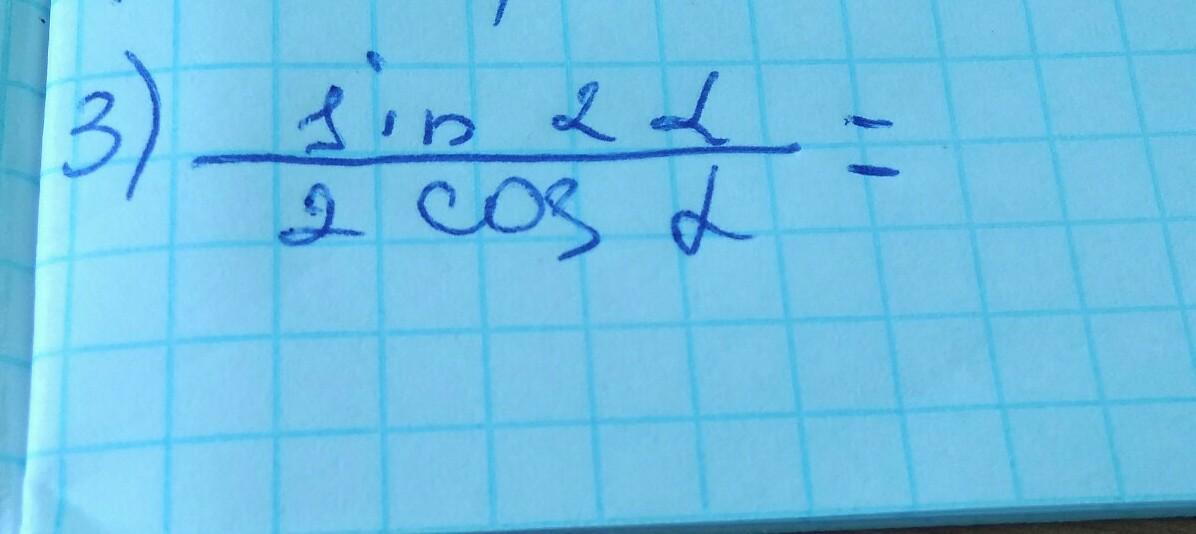 3) sin 2 α =
2 cos α